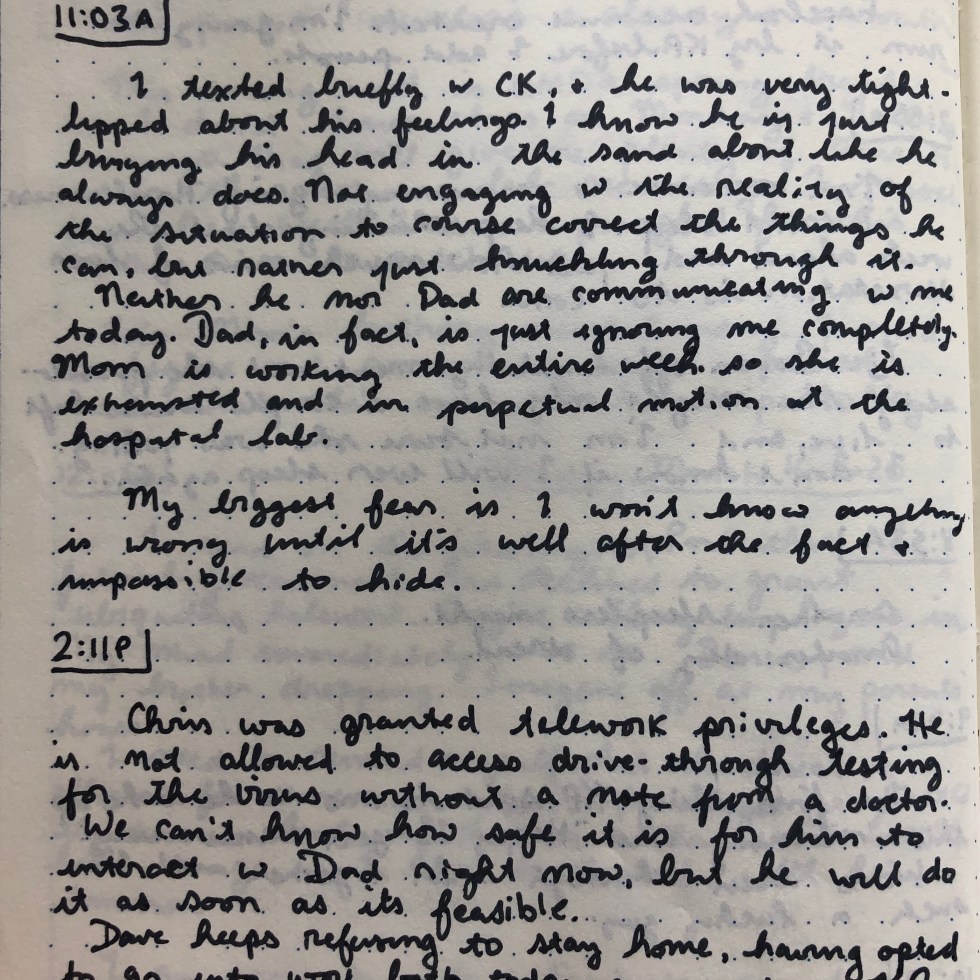 11:03A
I texted briefly w CK, + he was very tight-
lipped about his feelings. I know he is just
burying his head in the sand about like he
always does. Not engaging w the reality of
the situation to course correct the things he
can, but rather just knuckling through it.
Neither he nor Dad are communicating w me
today. Dad, in fact, is just ignoring me completely.
Mom is working the entire week so she is
exhausted and in perpetual motion at the
hospital lab.
My biggest fear is I won't know anything
is wrong until it's well after the fact +
impossible to hide.
2:11P
Chris was granted telework privileges. He
is not allowed to access drive-through testing
for the virus without a note from a doctor.
We can't know how safe it is for him to
interact w Dad right now, but he will do
it as soon as its feasible.
Dave keeps refusing to stay home, having opted
to go into work both today